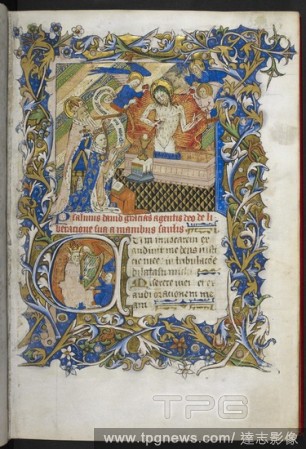 Psalmus david gracias agentis deo de li
beracione sua a manibus saulis
Cum invocarem ex
audivit me deus iusti
cie mee in tribulacōe
dilatasti michi
Miserere mei et ex
audi orationem me
am
TPG
www.tpgnews.com/ 達志影像